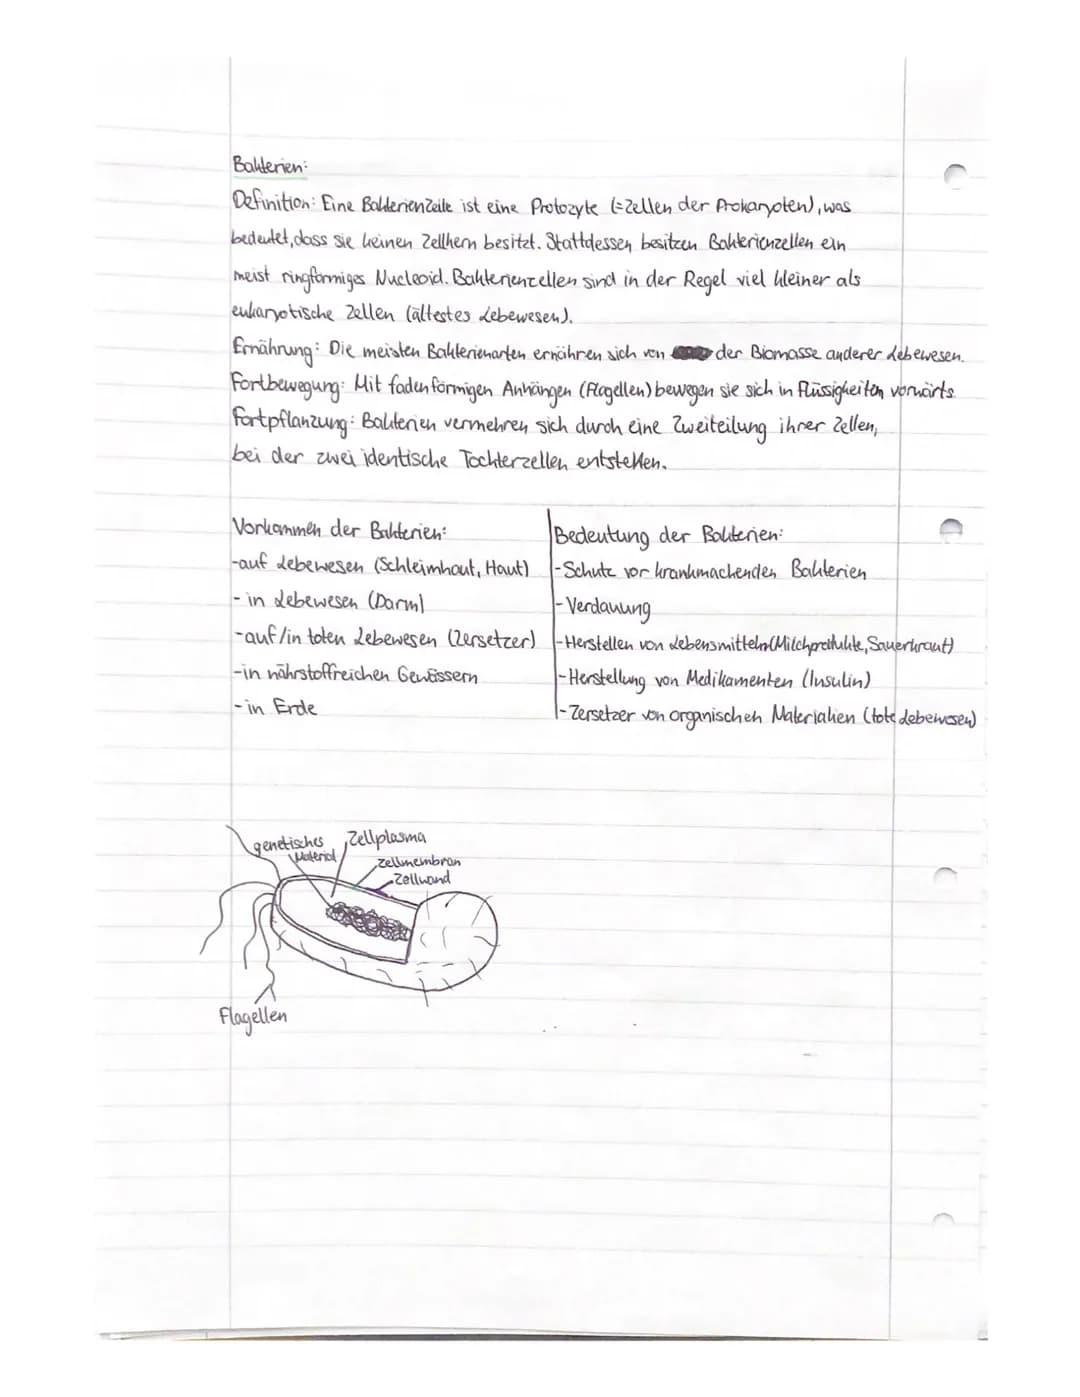 Bakterien:
Definition: Eine Bakterienzelle ist eine Protozyte (=Zellen der Prokaryoten), was
bedeutet, dass sie keinen Zellkern besitzt. Stattdessen besitzen Bakterienzellen ein
meist ringförmiges Nucleoid. Bakterienzellen sind in der Regel viel kleiner als
eukaryotische Zellen (ältestes Lebewesen).
Ernährung: Die meisten Bakterienarten ernähren sich von der Biomasse anderer Lebewesen.
Fortbewegung: Mit fadenförmigen Anhängen (Flagellen) bewegen sie sich in Flüssigkeiten vorwärts.
Fortpflanzung: Bakterien vermehren sich durch eine Zweiteilung ihrer Zellen,
bei der zwei identische Tochterzellen entstehen.
Vorkommen der Bakterien:
-auf Lebewesen (Schleimhaut, Haut)
- in Lebewesen (Darm)
-auf/in toten Lebewesen (Zersetzer)
-in nährstoffreichen Gewässern
-in Erde
Bedeutung der Bakterien:
-Schutz vor krankmachenden Bakterien
-Verdauung
-Herstellen von Lebensmitteln(Milchprodukte, Sauerkraut)
-Herstellung von Medikamenten (Insulin)
-Zersetzer von organischen Materialien (tote Lebewesen)
genetisches
Material
Zellplasma
Zellmembran
Zellwand
Flagellen